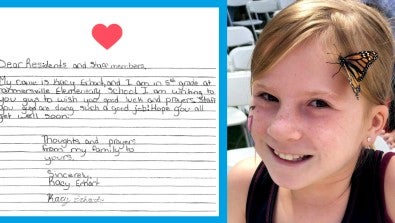 Dear Residents and staff members,
My name is Kacy Erhart, and I am in 5th grade at
Elementary School I am writing to
you guys to wish you good luck and prayers. Staff
you are doing such a good job! Hope you all
get well soon.
Thoughts and prayers
from my family to
yours.
Sincerely,
Kacy Erhart
Kacy Erhart